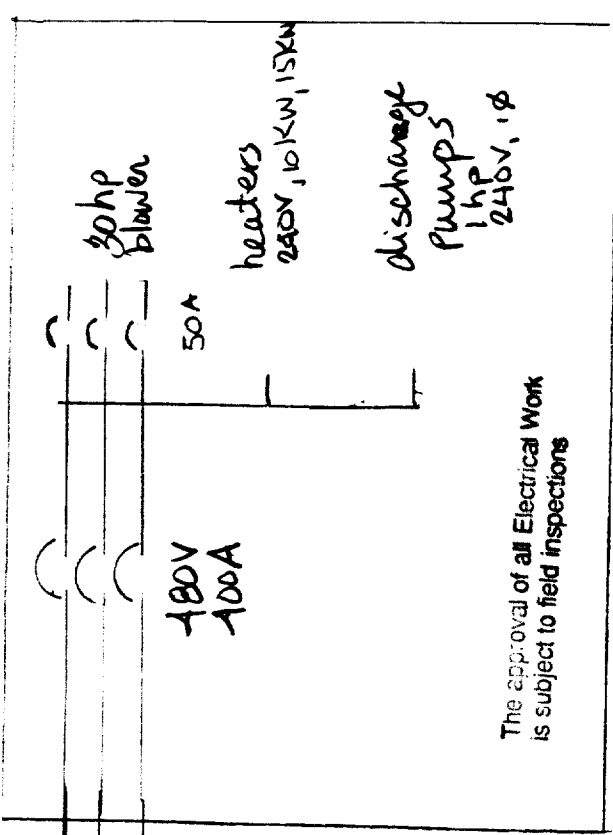 30hp
blower
50A
heaters
240V, 10KW, 15KW
discharge
Pumps
1 hp
240V, 1Ø
480V
100A
The approval of all Electrical Work
is subject to field inspections